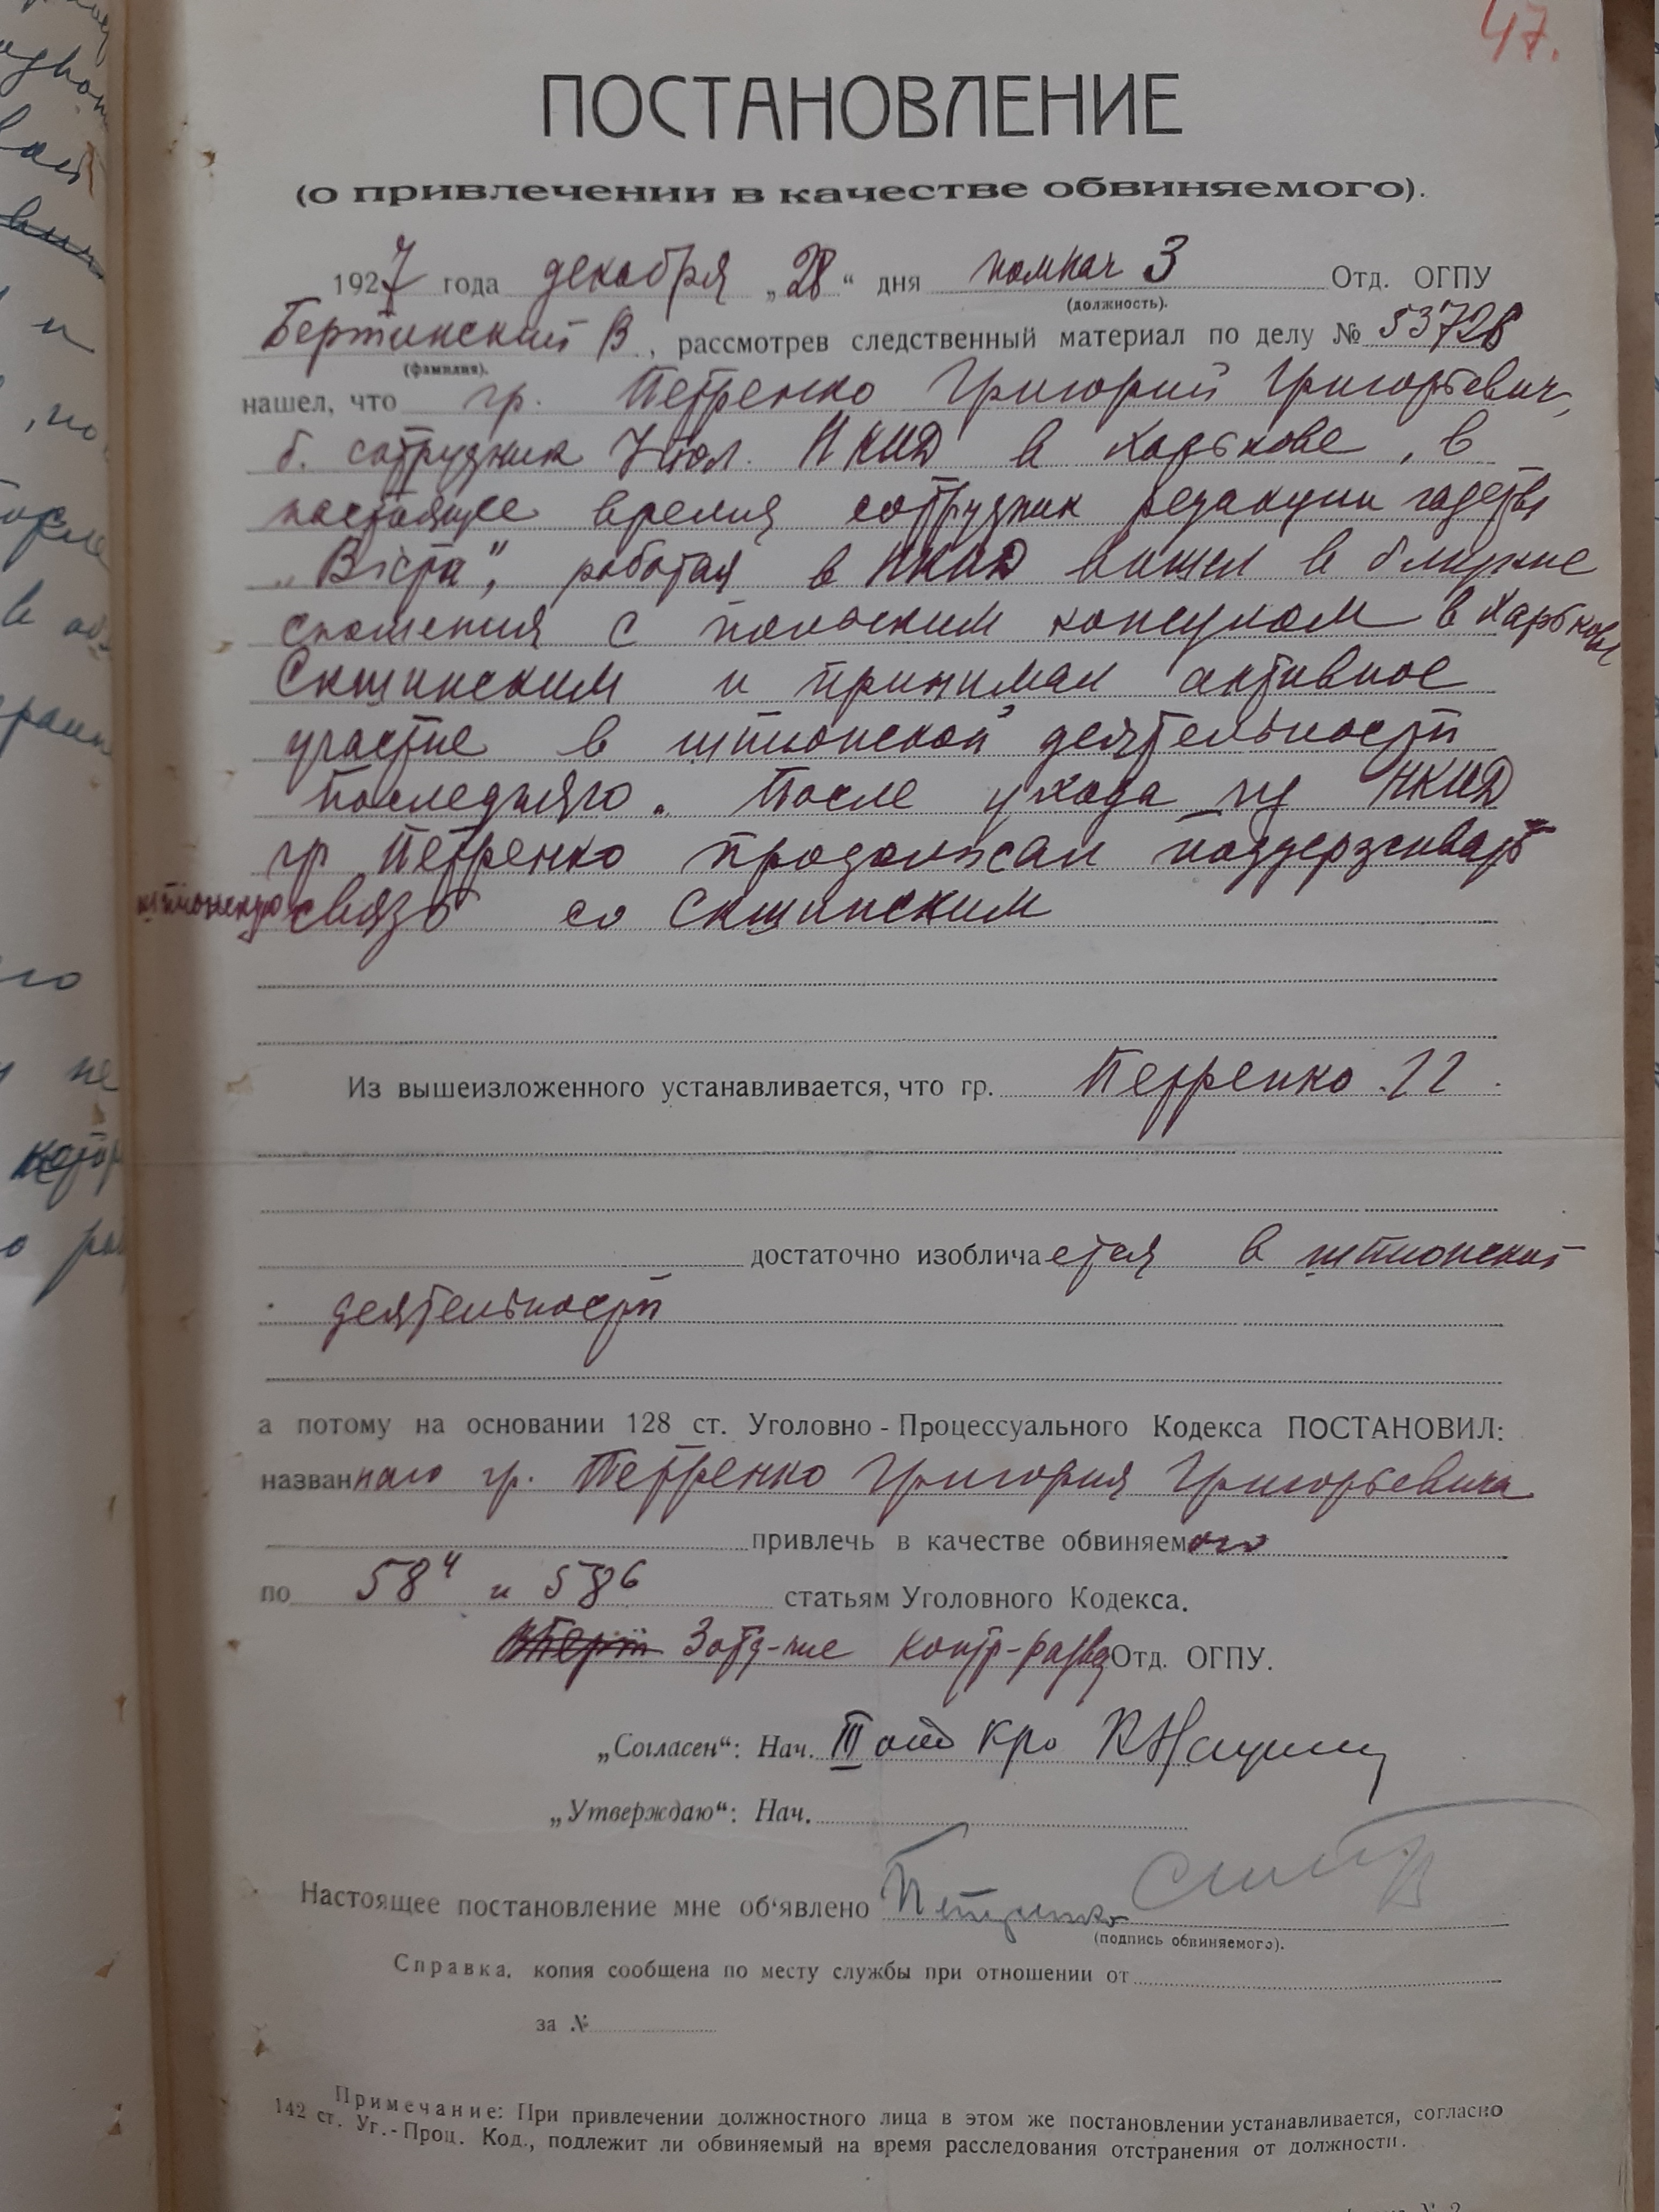 47.
ПОСТАНОВЛЕНИЕ
(о привлечении в качестве обвиняемого).
1927 года декабря „28“ дня помнач 3 Отд. ОГПУ
(должность).
Бертинский В, рассмотрев следственный материал по делу № 53728
(фамилия).
нашел, что гр. Петренко Григорий Григорьевич,
б. сотрудник Упол. НКИД в Харькове, в
настоящее время сотрудник редакции газеты
„Вісти“, работая в НКИД вошел в близкие
сношения с польским консулом в Харькове
Скшинским и принимал активное
участие в шпионской деятельности
последняго. После ухода из НКИД
гр Петренко продолжал поддерживать
шпионскую связь со Скшинским
Из вышеизложенного устанавливается, что гр. Петренко ГГ.
достаточно изобличается в шпионской
деятельности
а потому на основании 128 ст. Уголовно-Процессуального Кодекса ПОСТАНОВИЛ:
названнаго гр. Петренко Григория Григорьевича
привлечь в качестве обвиняемого
по 58⁴ и 58⁶ статьям Уголовного Кодекса.
3 отд-ние контр-развед Отд. ОГПУ.
„Согласен“: Нач. III отд Кро
„Утверждаю“: Нач.
Настоящее постановление мне об'явлено Петренко
(подпись обвиняемого).
Справка. копия сообщена по месту службы при отношении от
за №
Примечание: При привлечении должностного лица в этом же постановлении устанавливается, согласно
142 ст. Уг.-Проц. Код., подлежит ли обвиняемый на время расследования отстранения от должности.